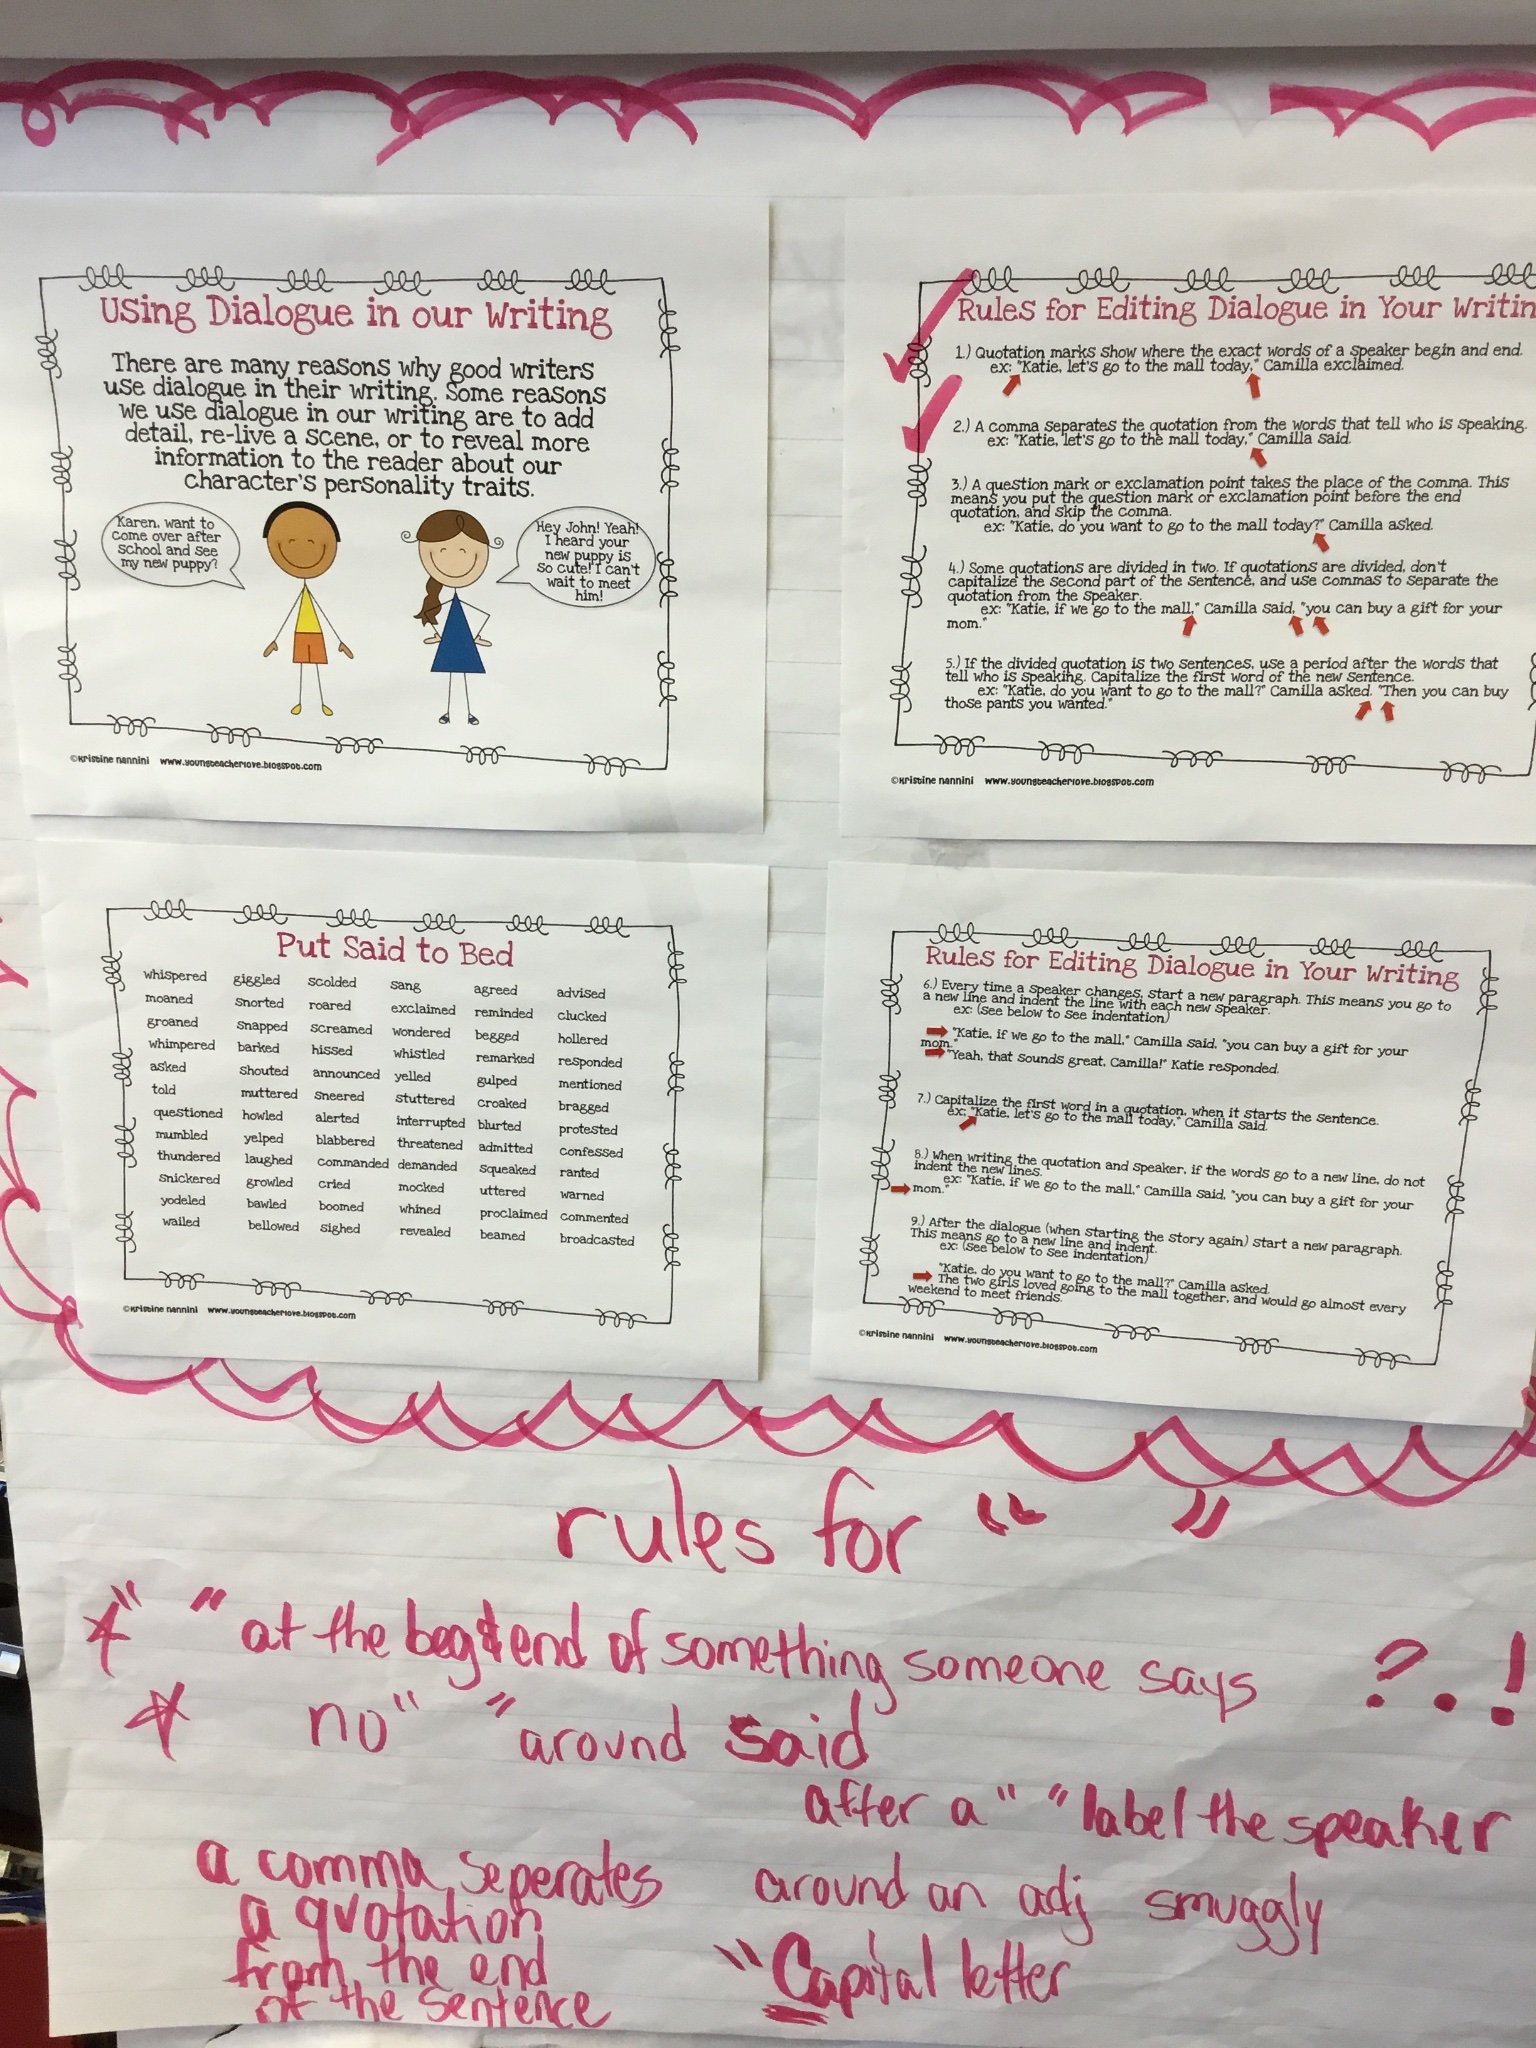 Using Dialogue in our Writing
There are many reasons why good writers
use dialogue in their writing. Some reasons
we use dialogue in our writing are to add
detail, re-live a scene, or to reveal more
information to the reader about our
character's personality traits.
Karen, want to
come over after
school and see
my new puppy?
Hey John! Yeah!
I heard your
new puppy is
so cute! I can't
wait to meet
him!
©Kristine nannini www.youngteacherlove.blogspot.com
Rules for Editing Dialogue in Your Writin
1.) Quotation marks show where the exact words of a speaker begin and end.
ex: "Katie, let's go to the mall today," Camilla exclaimed.
2.) A comma separates the quotation from the words that tell who is speaking.
ex: "Katie, let's go to the mall today," Camilla said.
3.) A question mark or exclamation point takes the place of the comma. This
means you put the question mark or exclamation point before the end
quotation, and skip the comma.
ex: "Katie, do you want to go to the mall today?" Camilla asked.
4.) Some quotations are divided in two. If quotations are divided, don't
capitalize the second part of the sentence, and use commas to separate the
quotation from the speaker.
ex: "Katie, if we go to the mall," Camilla said, "you can buy a gift for your
mom."
5.) If the divided quotation is two sentences, use a period after the words that
tell who is speaking. Capitalize the first word of the new sentence.
ex: "Katie, do you want to go to the mall?" Camilla asked. "Then you can buy
those pants you wanted."
©Kristine nannini www.youngteacherlove.blogspot.com
Put Said to Bed
whispered giggled scolded sang agreed advised
moaned snorted roared exclaimed reminded clucked
groaned snapped screamed wondered begged hollered
whimpered barked hissed whistled remarked responded
asked shouted announced yelled gulped mentioned
told muttered sneered stuttered croaked bragged
questioned howled alerted interrupted blurted protested
mumbled yelped blabbered threatened admitted confessed
thundered laughed commanded demanded squeaked ranted
snickered growled cried mocked uttered warned
yodeled bawled boomed whined proclaimed commented
wailed bellowed sighed revealed beamed broadcasted
©Kristine nannini www.youngteacherlove.blogspot.com
Rules for Editing Dialogue in Your Writing
6.) Every time a speaker changes, start a new paragraph. This means you go to
a new line and indent the line with each new speaker.
ex: (see below to see indentation)
"Katie, if we go to the mall," Camilla said, "you can buy a gift for your
mom."
"Yeah, that sounds great, Camilla!" Katie responded.
7.) Capitalize the first word in a quotation, when it starts the sentence.
ex: "Katie, let's go to the mall today," Camilla said.
8.) When writing the quotation and speaker, if the words go to a new line, do not
indent the new lines.
ex: "Katie, if we go to the mall," Camilla said, "you can buy a gift for your
mom."
9.) After the dialogue (when starting the story again) start a new paragraph.
This means go to a new line and indent.
ex: (see below to see indentation)
"Katie, do you want to go to the mall?" Camilla asked.
The two girls loved going to the mall together, and would go almost every
weekend to meet friends.
©Kristine nannini www.youngteacherlove.blogspot.com
rules for " "
" " at the beg & end of something someone says ? . !
no " " around said
after a " " label the speaker
a comma seperates
a quotation
from the end
of the sentence
around an adj smuggly
"Capital letter